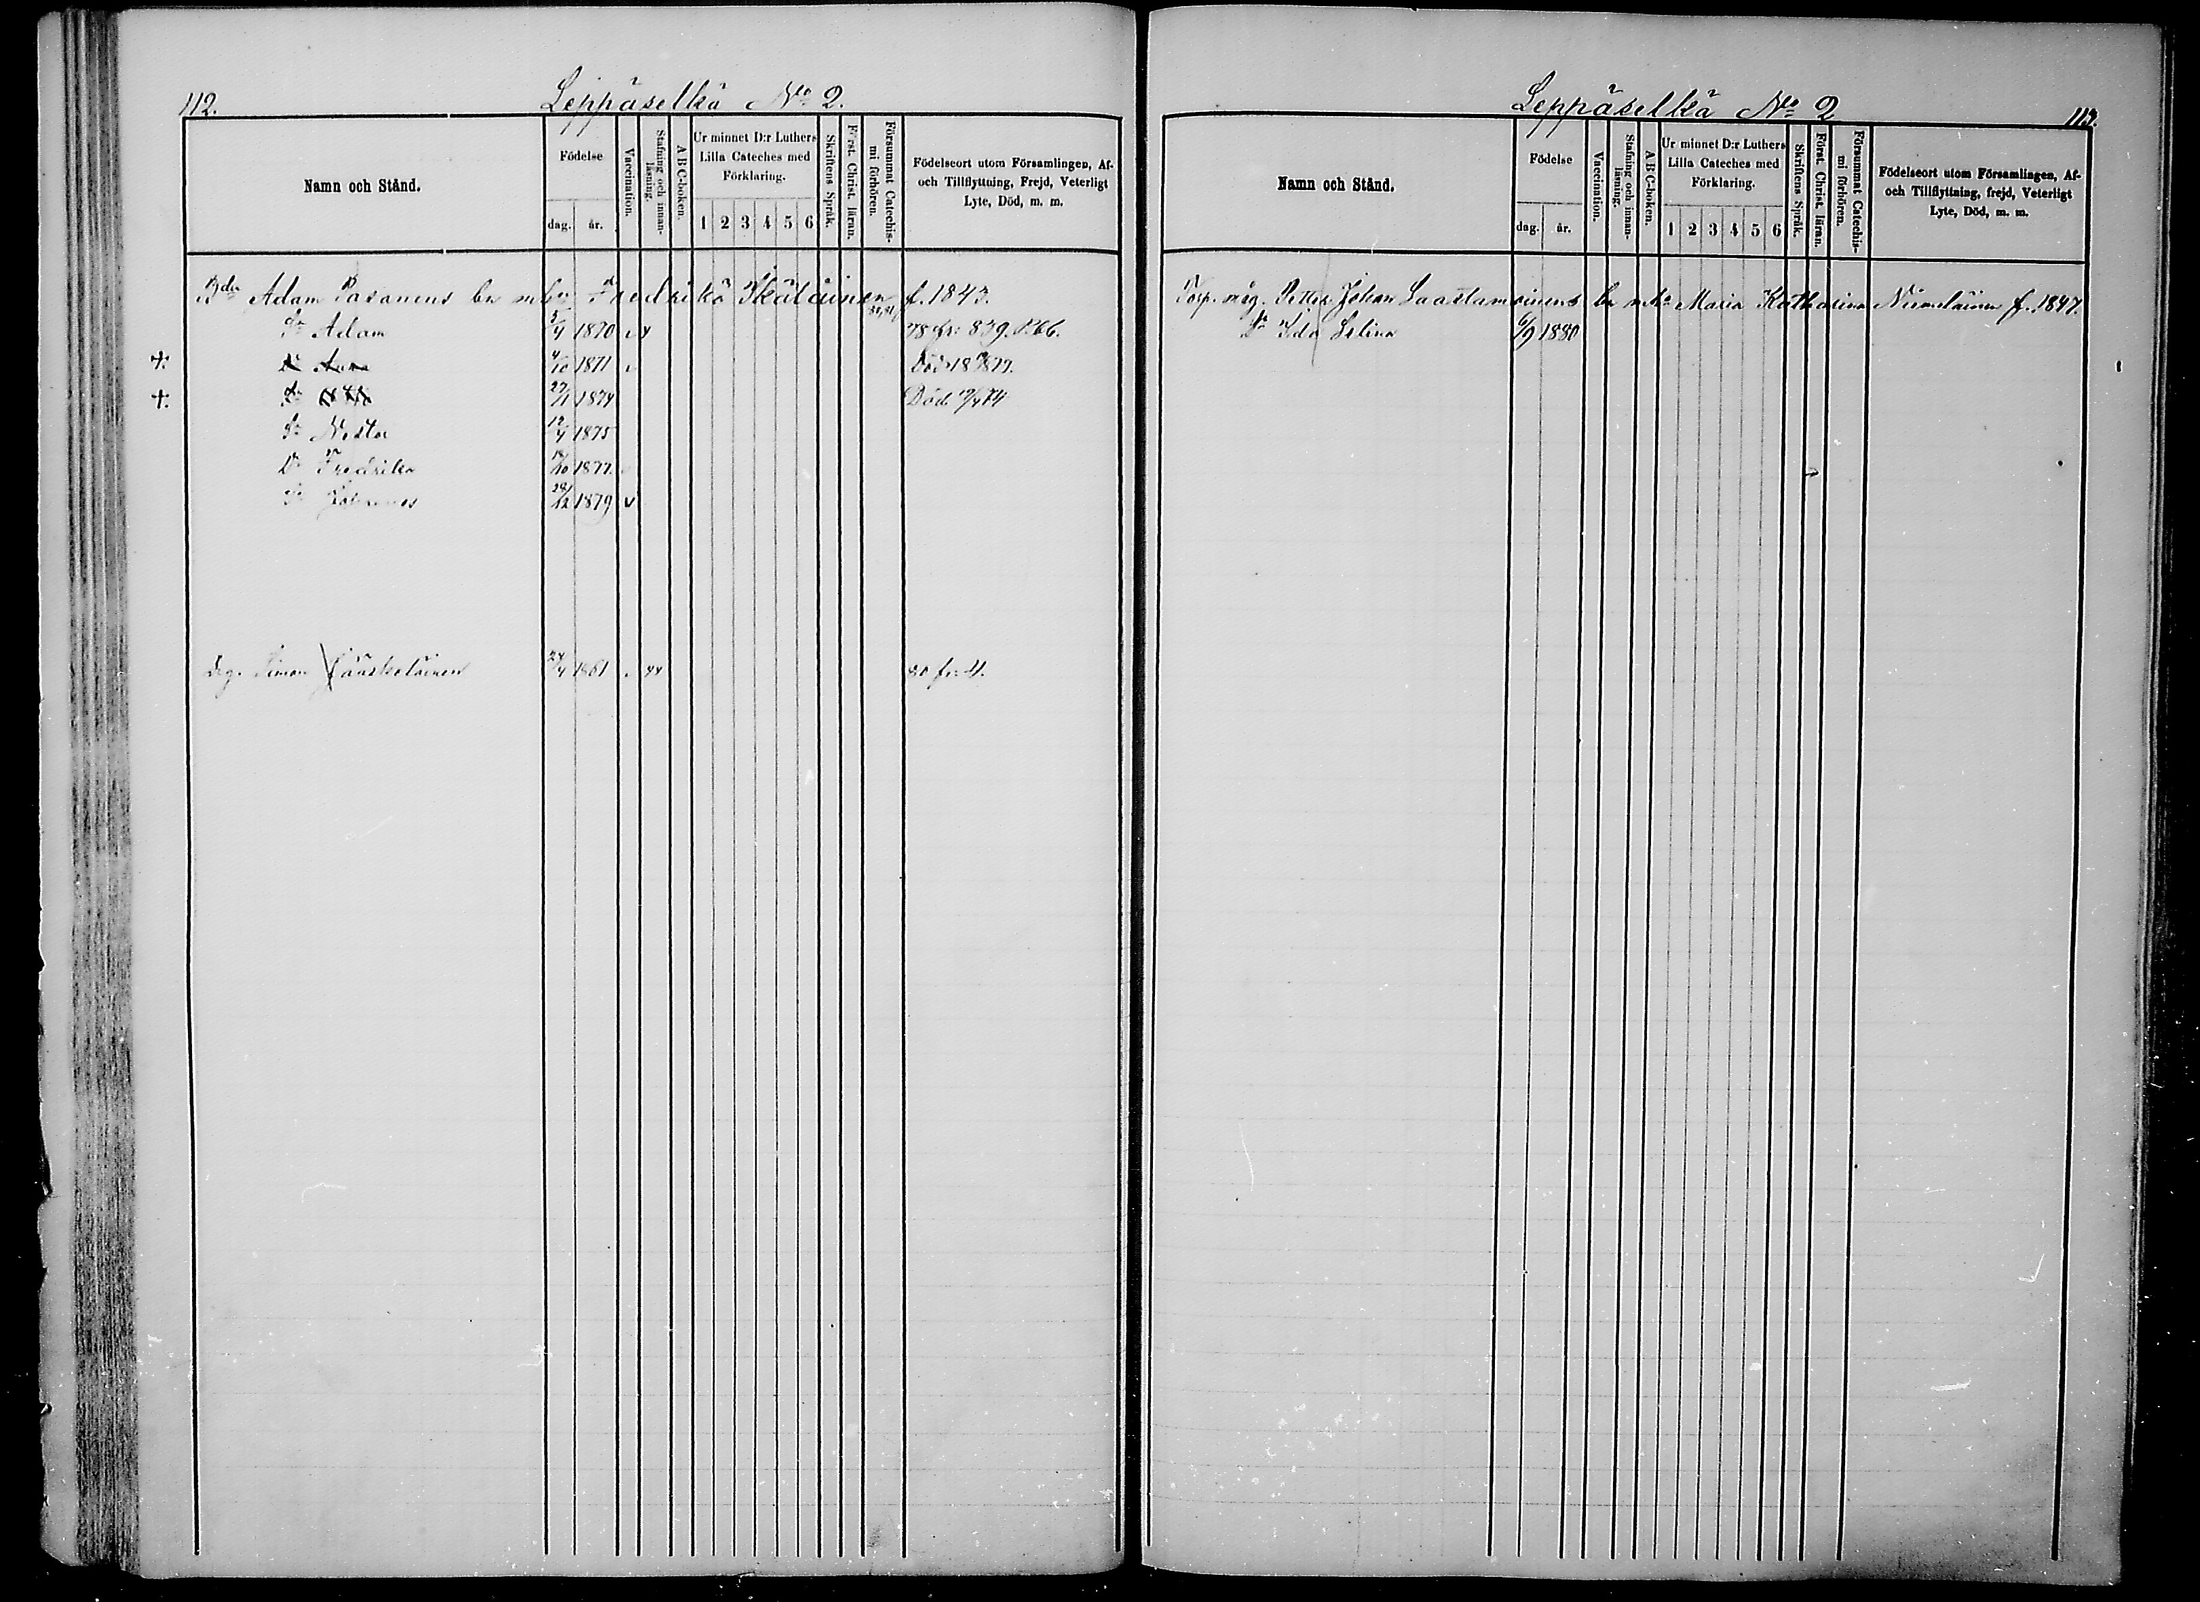 112.
Leppäselkä No 2.
Namn och Stånd.
Födelse
dag.
år.
Vaccination.
Stafning och innan-läsning.
A B C-boken.
Ur minnet D:r Luthers
Lilla Cateches med
Förklaring.
1 2 3 4 5 6
Skriftens Språk.
Först. Christ. läran.
Försummat Catechis-mi förhören.
Födelseort utom Församlingen, Af-
och Tillflyttning, Frejd, Veterligt
Lyte, Död, m. m.
Adam Pasanens bn m Fredrika Ikäläinen f. 1843.
Sn Adam 5/4 1870 78 fr: 839. 1866.
Dr Anna 4/10 1871 Död 18
27/1 1874 Död
Sn Nestor 12/4 1875
Dr Fredrika 18/10 1877
Sn Johannes 28/12 1879 v
Drg. Simon Jääskeläinen 24/4 1861 80 fr: 4.
Leppäselkä No 2
113.
Namn och Stånd.
Födelse
dag.
år.
Vaccination.
Stafning och innan-läsning.
A B C-boken.
Ur minnet D:r Luthers
Lilla Cateches med
Förklaring.
1 2 3 4 5 6
Skriftens Språk.
Först. Christ. läran.
Försummat Catechis-mi förhören.
Födelseort utom Församlingen, Af-
och Tillflyttning, frejd, Veterligt
Lyte, Död, m. m.
Torp. måg. Petter Johan Saastamoinens bn m hu Maria Katharina Niemeläinen f. 1847.
Dr Ida Selina 6/9 1880